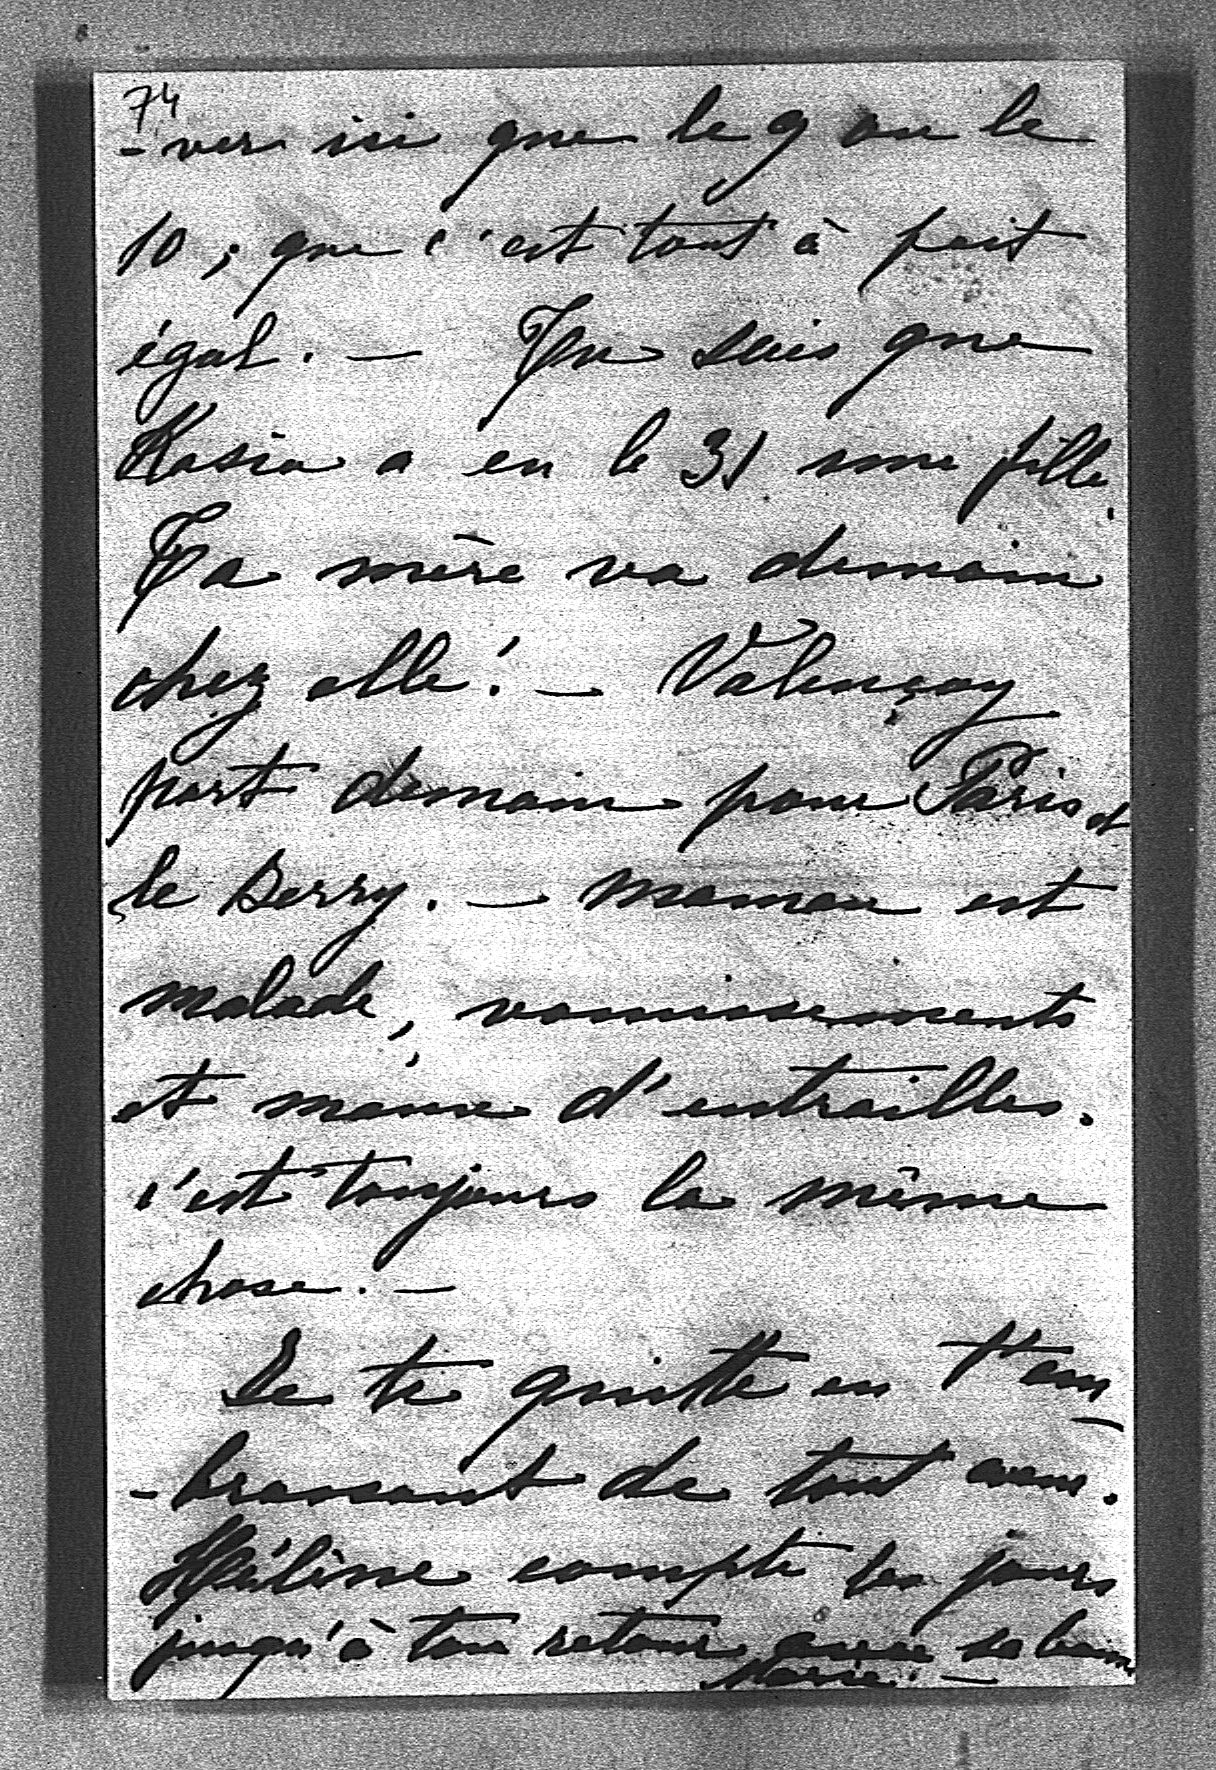 74
-ver ici que le 9 ou le
10 ; que c'est tout à fait
égal. — Tu sais que
Kasia a eu le 31 une fille.
Ta mère va demain
chez elle ! — Valençay
part demain pour Paris et
le Berry. — Maman est
malade, vomissements
et maux d'entrailles.
c'est toujours la même
chose. —
Je te quitte en t'em
-brassant de tout cœur.
Hélène compte les jours
jusqu'à ton retour avec sa bonne
Marie. —